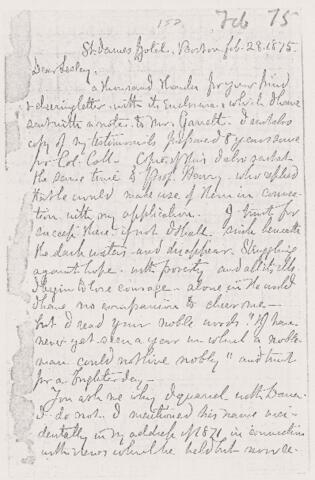 152
Feb 75
St. James Hotel, Boston Feb. 28. 1875.
Dear Lesley,
a thousand thanks for your kind
& cheering letter with its Enclosure which I have
sent with a note to Mr. Garrett. I sent also
copy of my testimonials prepared 8 years since
for Col. Coll. Copies of this I also sent at
the same time to Prof. Henry, who replied
that he would make use of them in connec-
tion with my application. I trust for
success there if not I shall sink beneath
the dark waters and disappear. Struggling
against hope with poverty and all its ills
I begin to lose courage - alone in the world
I have no companion to cheer me -
but I read your noble words "I have
never yet seen a year in which a noble
man could not live nobly" and trust
for a brighter day -
You ask me why I quarrel with Dana.
I do not. I mentioned his name inci-
dentally in my address of 1871 in connection
with views which he held but now re-